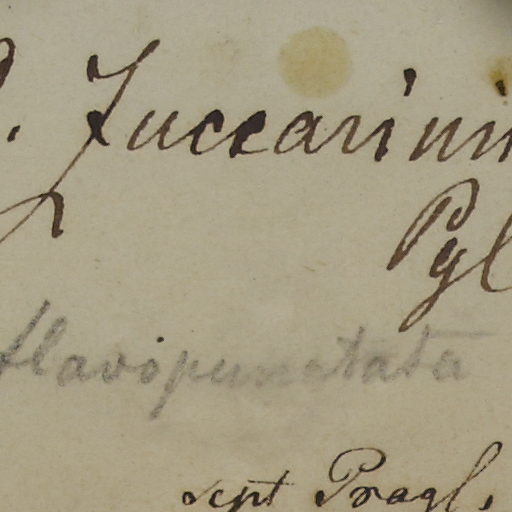 Zuccarini
flavipunctata
sept Pragl.